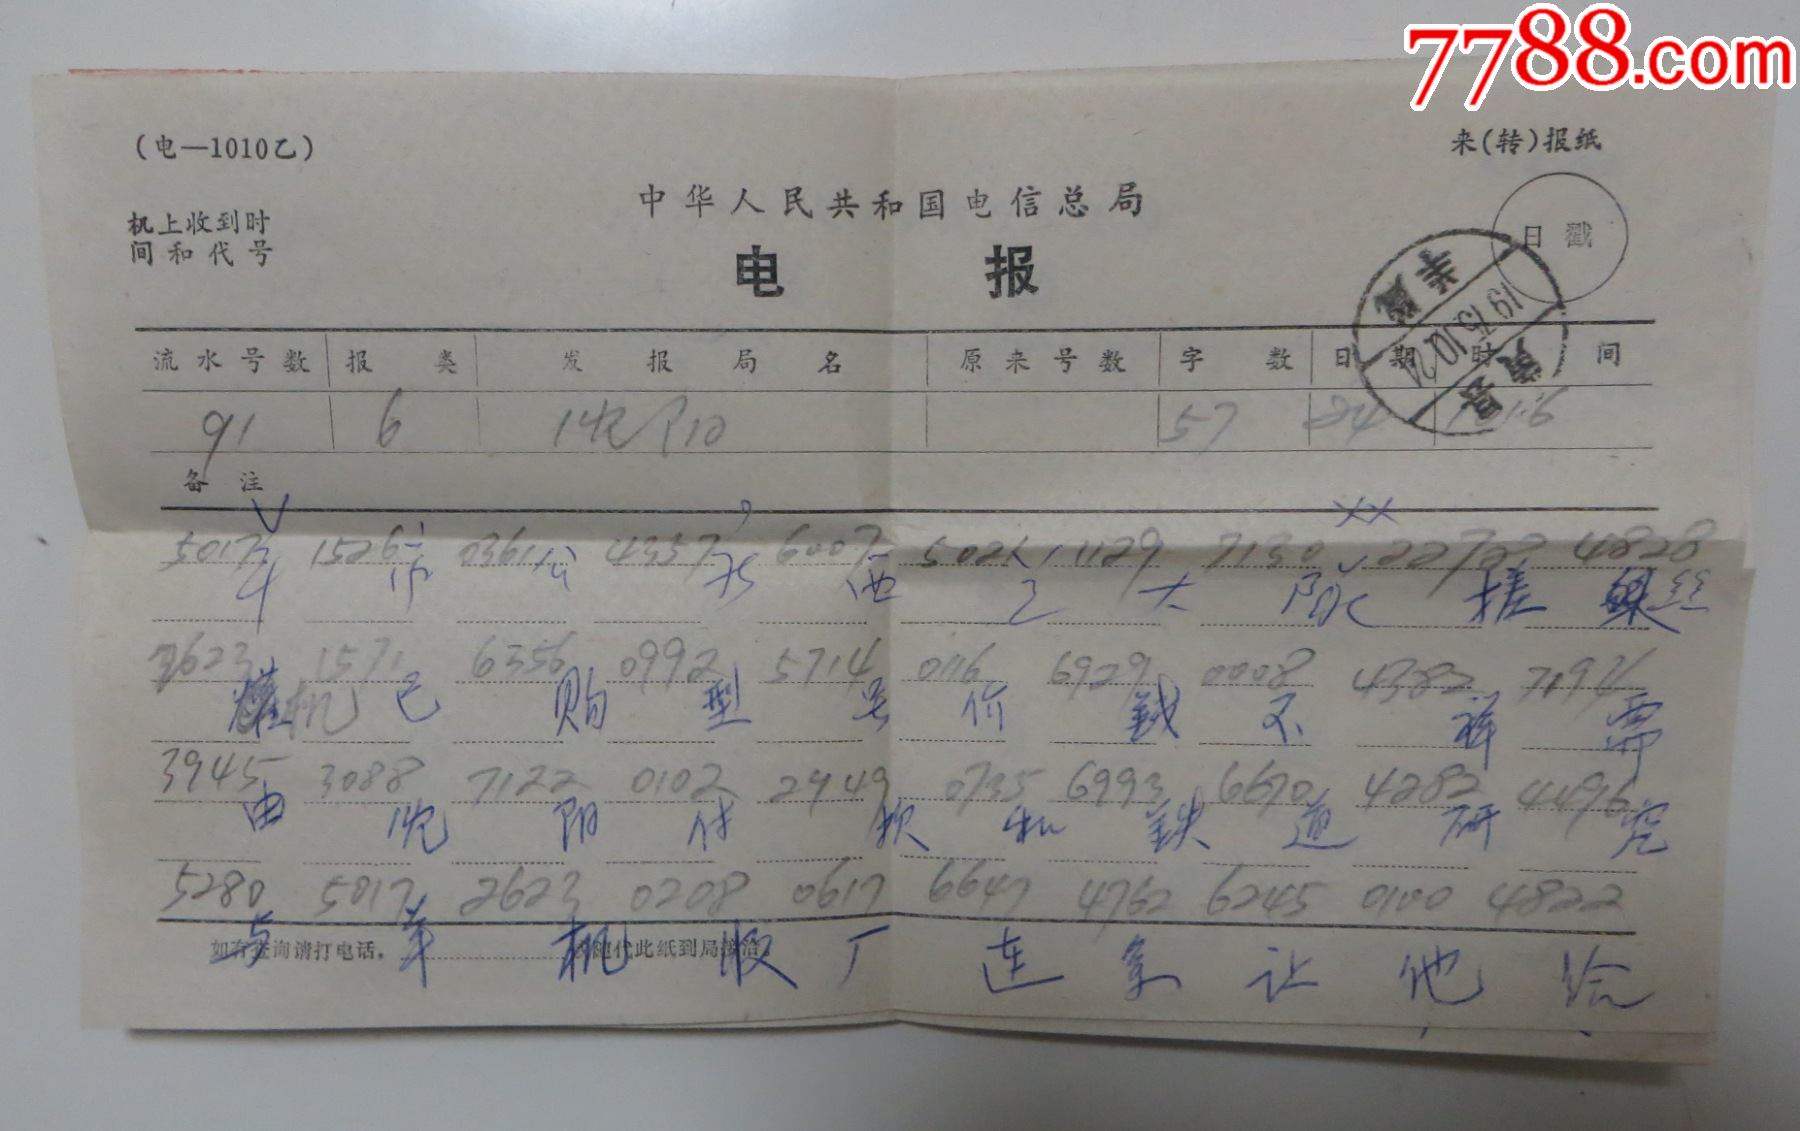 7788.com
(电—1010乙)
来(转)报纸
机上收到时
间和代号
中华人民共和国电信总局
电报
日戳
流水号数 报类 发报局名 原来号数 字数 日期 时间
91 6 沈 P10 57 24
备注
1975.10.24
5017 1526 0361 4337 6007 5021 1129 7130 4828
市 公 西 乙 大 队 搓 丝
2623 1571 6356 0992 5714 0116 6929 0008 4382 7194
机 已 购 型 号 价 钱 不 详 需
3945 3088 7122 0102 2949 0735 6993 6670 4282 4496
由 沈 阳 付 款 和 铁 道 研 究
5280 5017 2623 0208 0617 6647 4762 6245 0100 4822
与 羊 机 厂 连 让 他 给
如有查询请打电话,
代此纸到局接洽。